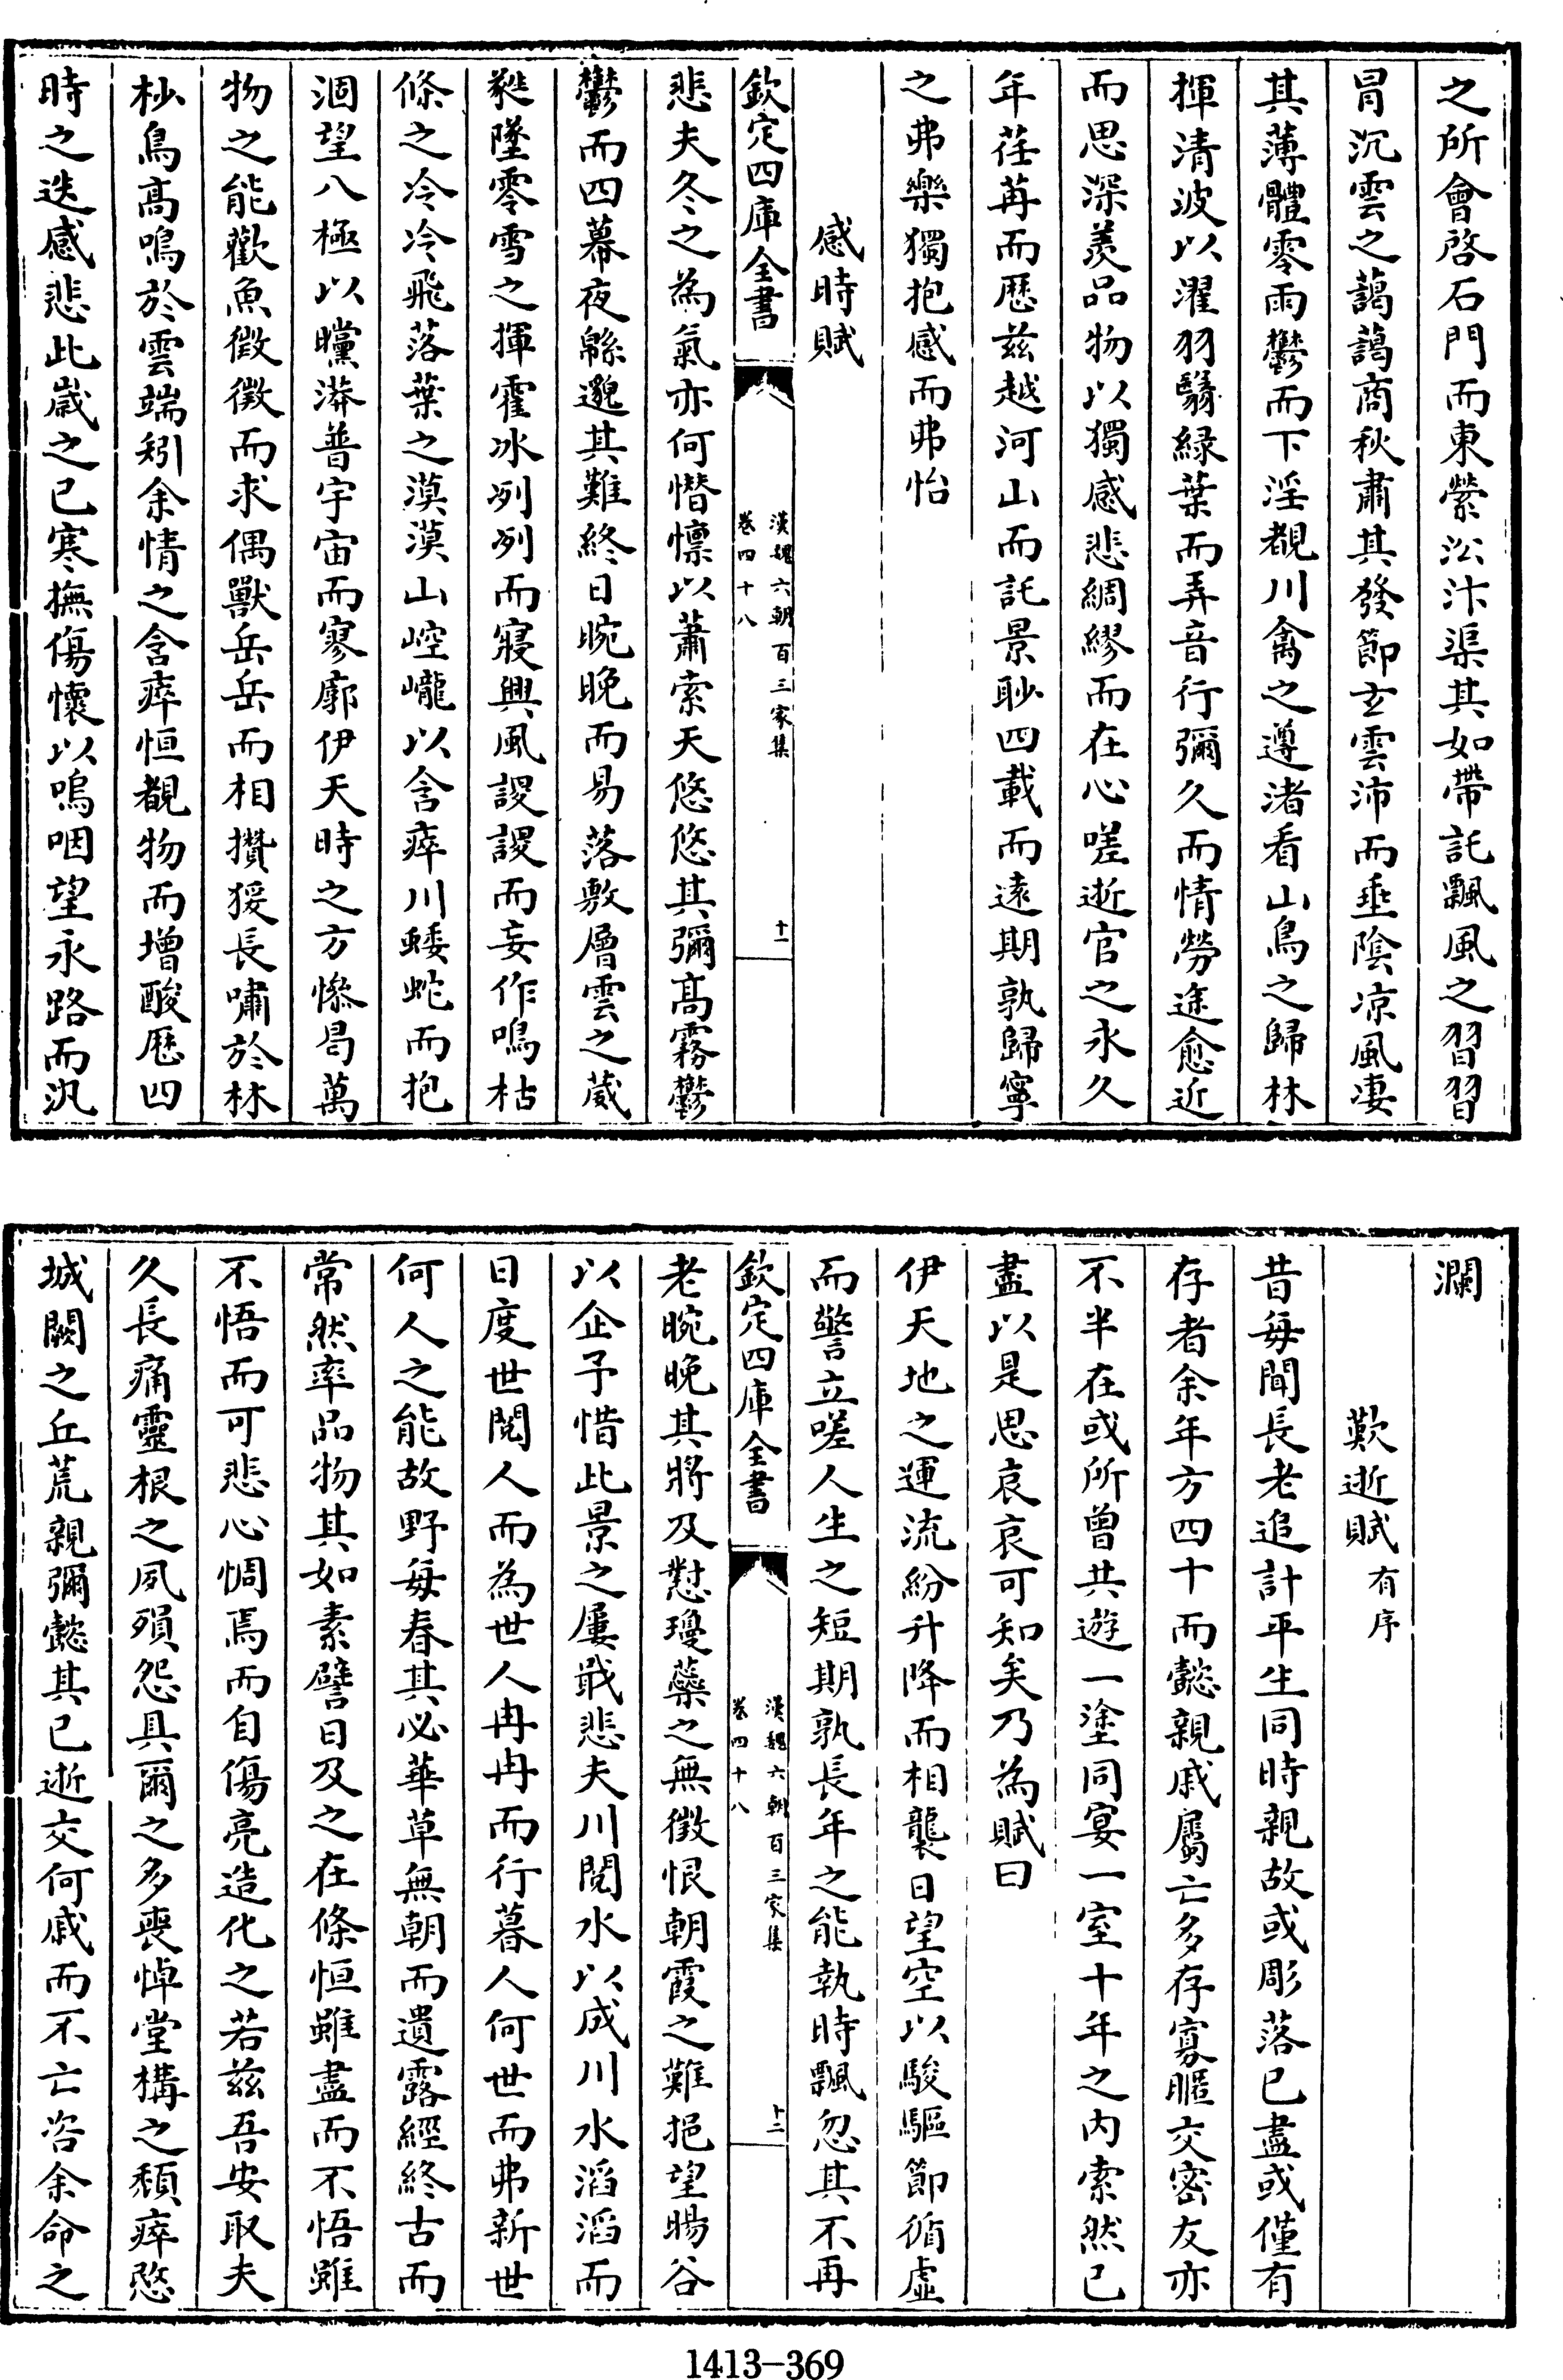 之所會啓石門而東縈㳂汴渠其如帶託飄風之習習
冐沉雲之藹藹商秋肅其發節玄雲沛而垂隂凉風凄
其薄體零雨鬱而下淫覩川禽之遵渚看山鳥之歸林
揮清波以濯羽翳緑葉而弄音行彌久而情勞途愈近
而思深羨品物以獨感悲綢繆而在心嗟逝官之永久
年荏苒而厯兹越河山而託景眇四載而逺期孰歸寧
之弗樂獨抱感而弗怡
感時賦
欽定四庫全書
漢魏六朝百三家集
卷四十八
十一
悲夫冬之為氣亦何憯懍以蕭索天悠悠其彌髙霧鬱
鬱而四幕夜緜邈其難終日晼晚而易落敷層雲之葳
蕤墜零雪之揮霍冰冽冽而寢興風謖謖而妄作鳴枯
條之冷冷飛落葉之漠漠山崆巄以含瘁川蜲蛇而抱
涸望八極以曭漭普宇宙而寥廓伊天時之方慘曷萬
物之能歡魚微微而求偶獸岳岳而相攢猨長嘯於林
杪鳥髙鳴於雲端矧余情之含瘁恒覩物而增酸厯四
時之迭感悲此歲之已寒撫傷懷以嗚咽望永路而汎
瀾
歎逝賦有序
昔每聞長老追計平生同時親故或彫落已盡或僅有
存者余年方四十而懿親戚屬亡多存寡暱交密友亦
不半在或所曾共遊一塗同宴一室十年之内索然已
盡以是思哀哀可知矣乃為賦曰
伊天地之運流紛升降而相襲日望空以駿驅節循虛
而警立嗟人生之短期孰長年之能執時飄忽其不再
欽定四庫全書
漢魏六朝百三家集
卷四十八
十二
老晼晚其將及懟瓊蘂之無徴恨朝霞之難挹望暘谷
以企予惜此景之屢戢悲夫川閲水以成川水滔滔而
日度世閲人而為世人冉冉而行暮人何世而弗新世
何人之能故野每春其必華草無朝而遺露經終古而
常然率品物其如素譬日及之在條恒雖盡而不悟雖
不悟而可悲心惆焉而自傷亮造化之若兹吾安取夫
久長痛靈根之夙殞怨具爾之多喪悼堂構之頽瘁愍
城闕之丘荒親彌懿其已逝交何戚而不亡咨余命之
1413-369